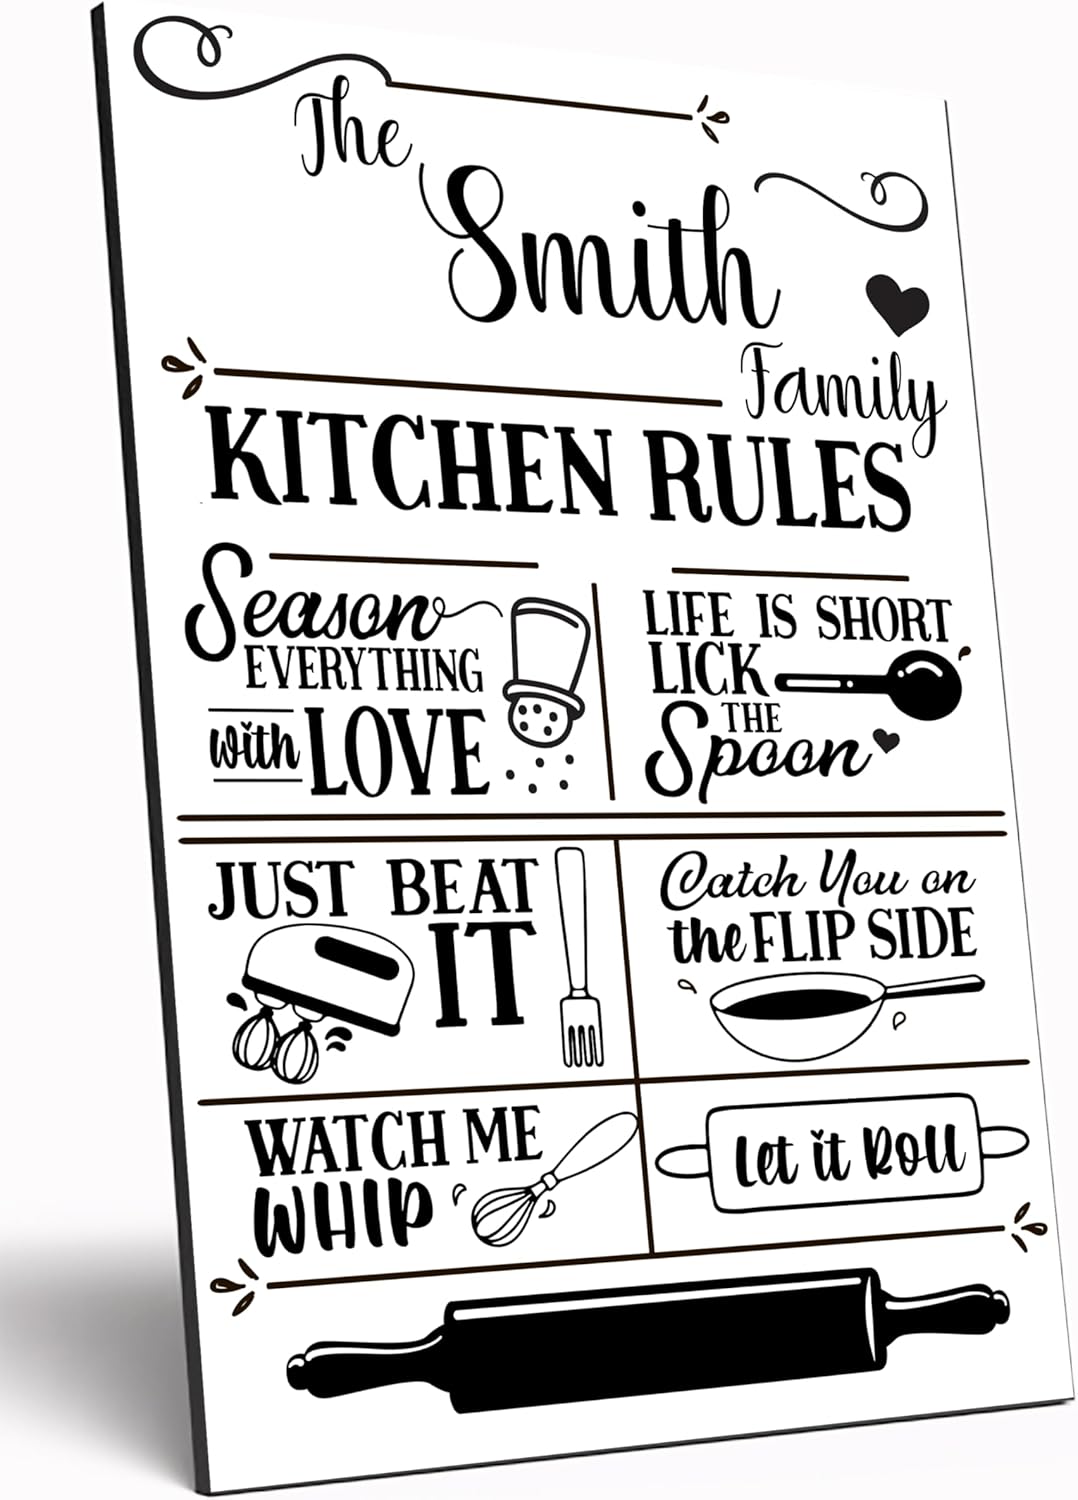 The
Smith
Family
KITCHEN RULES
Season
EVERYTHING
with LOVE
LIFE IS SHORT
LICK
THE
Spoon
JUST BEAT
IT
Catch You on
the FLIP SIDE
WATCH ME
WHIP
Let it Roll